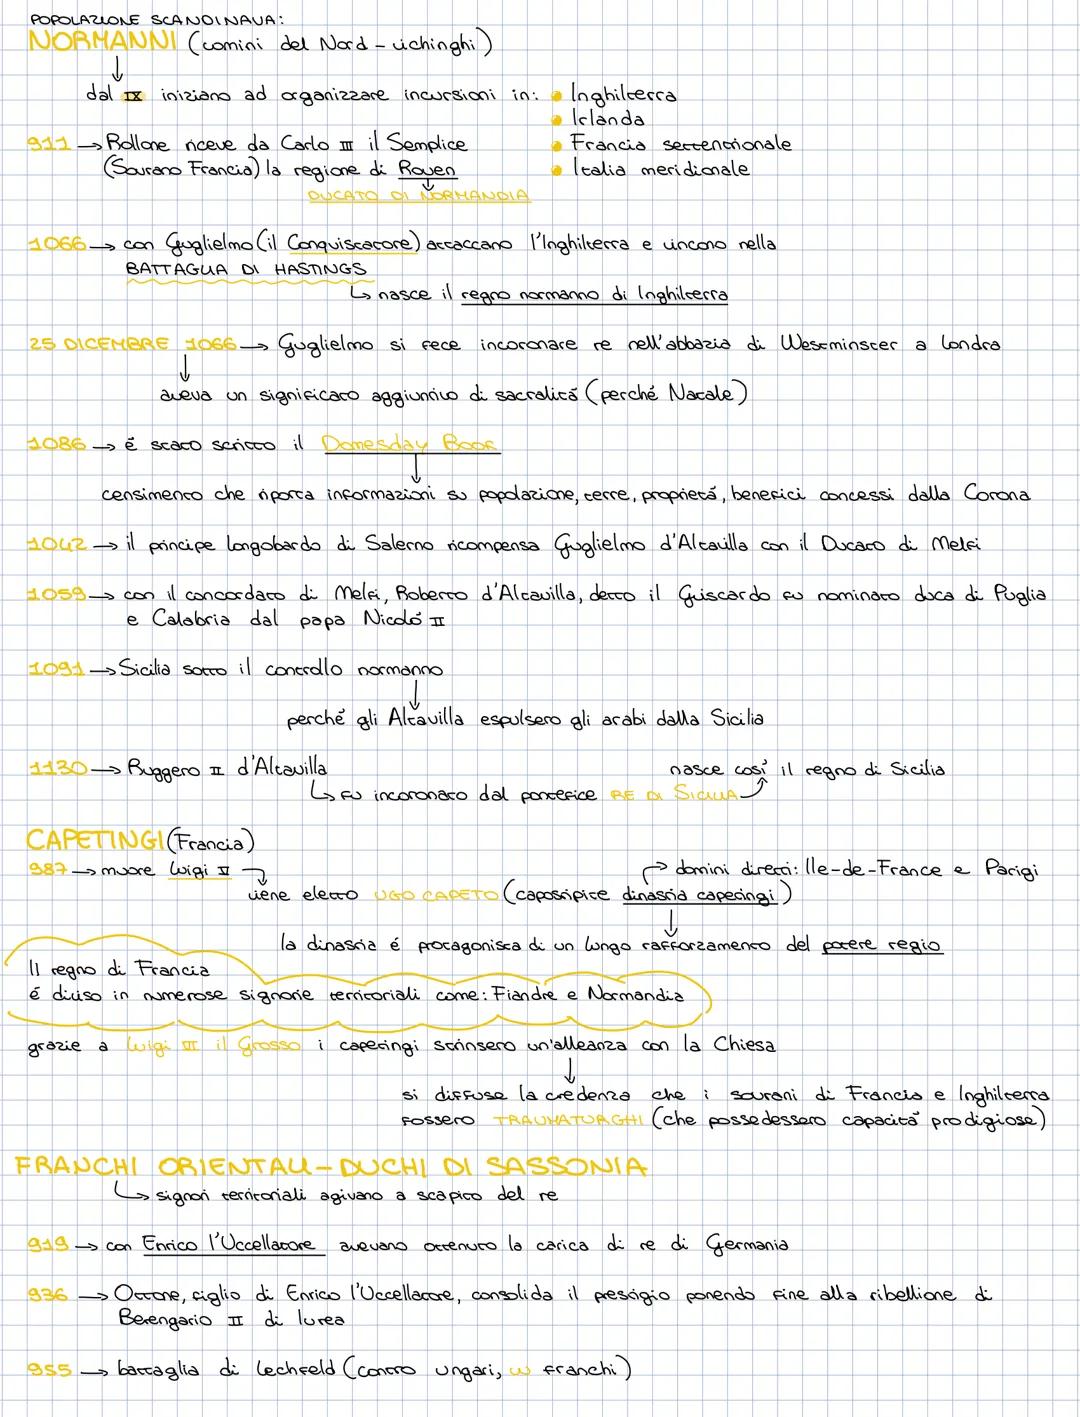 POPOLAZIONE SCANDINAVA:
NORMANNI (uomini del Nord - vichinghi)
dal IX iniziano ad organizzare incursioni in: • Inghilterra
• Irlanda
911 → Rollone riceve da Carlo III il Semplice • Francia settentrionale
(Sovrano Francia) la regione di Rouen • Italia meridionale
DUCATO DI NORMANDIA
1066 → con Guglielmo (il Conquistatore) attaccano l'Inghilterra e vincono nella
BATTAGLIA DI HASTINGS
↳ nasce il regno normanno di Inghilterra
25 DICEMBRE 1066 → Guglielmo si fece incoronare re nell'abbazia di Westminster a Londra
aveva un significato aggiuntivo di sacralitá (perché Natale)
1086 → é stato scritto il Domesday Book
censimento che riporta informazioni su popolazione, terre, proprietá, benefici concessi dalla Corona
1042 → il principe longobardo di Salerno ricompensa Guglielmo d'Altavilla con il Ducato di Melfi
1059 → con il concordato di Melfi, Roberto d'Altavilla, detto il Guiscardo fu nominato duca di Puglia
e Calabria dal papa Nicoló II
1091 → Sicilia sotto il controllo normanno
perché gli Altavilla espulsero gli arabi dalla Sicilia
1130 → Ruggero II d'Altavilla nasce cosí il regno di Sicilia
↳ fu incoronato dal pontefice RE DI SICILIA
CAPETINGI (Francia)
987 → muore Luigi V → domini diretti: Ile-de-France e Parigi
viene eletto UGO CAPETO (capostipite dinastia capetingi)
la dinastia é protagonista di un lungo rafforzamento del potere regio
Il regno di Francia
é diviso in numerose signorie territoriali come: Fiandre e Normandia
grazie a Luigi VI il Grosso i capetingi strinsero un'alleanza con la Chiesa
si diffuse la credenza che i sovrani di Francia e Inghilterra
fossero TRAUMATURGHI (che possedessero capacitá prodigiose)
FRANCHI ORIENTALI - DUCHI DI SASSONIA
↳ signori territoriali agivano a scapito del re
919 → con Enrico l'Uccellatore avevano ottenuto la carica di re di Germania
936 → Ottone, figlio di Enrico l'Uccellatore, consolida il prestigio ponendo fine alla ribellione di
Berengario II di Ivrea
955 → battaglia di Lechfeld (contro ungari, w franchi)